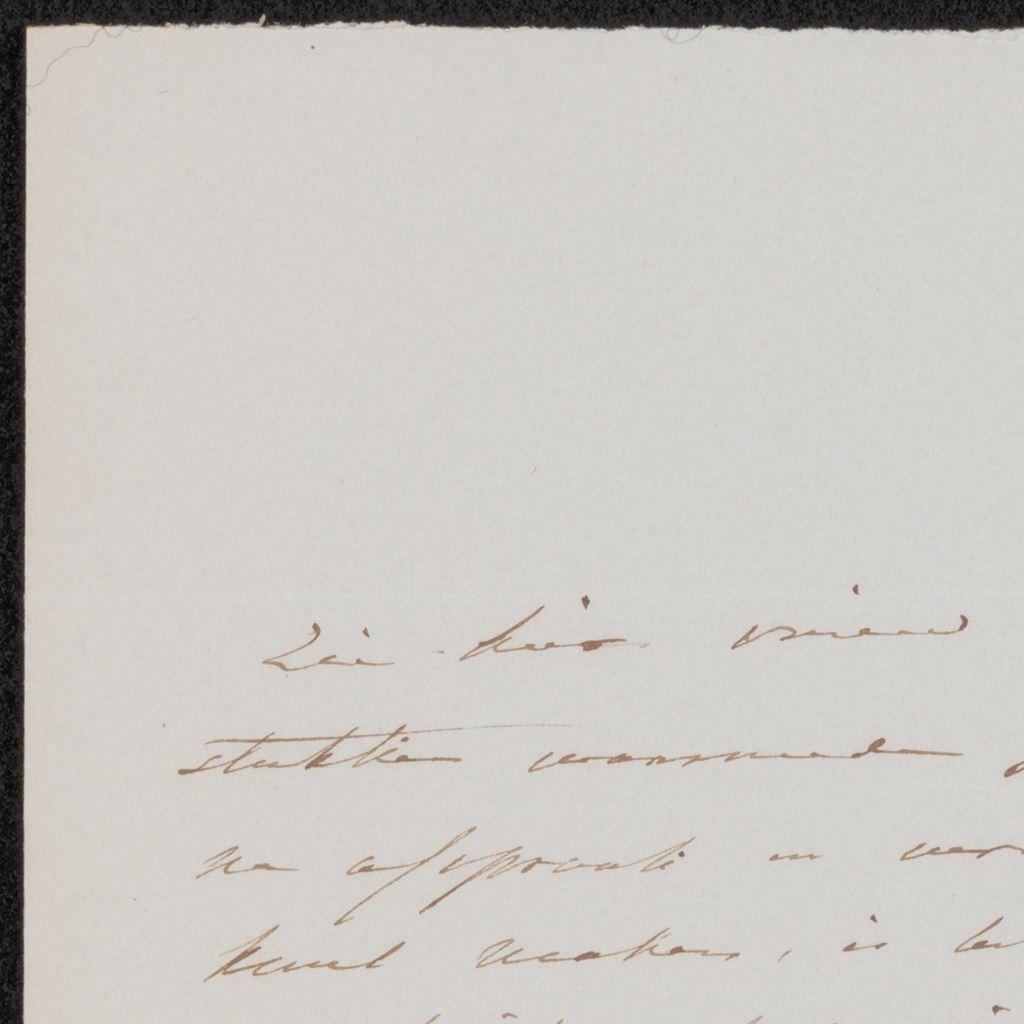 Zie hier vriend
stukken waarmede
na afspraak en ver
kunt maken, is